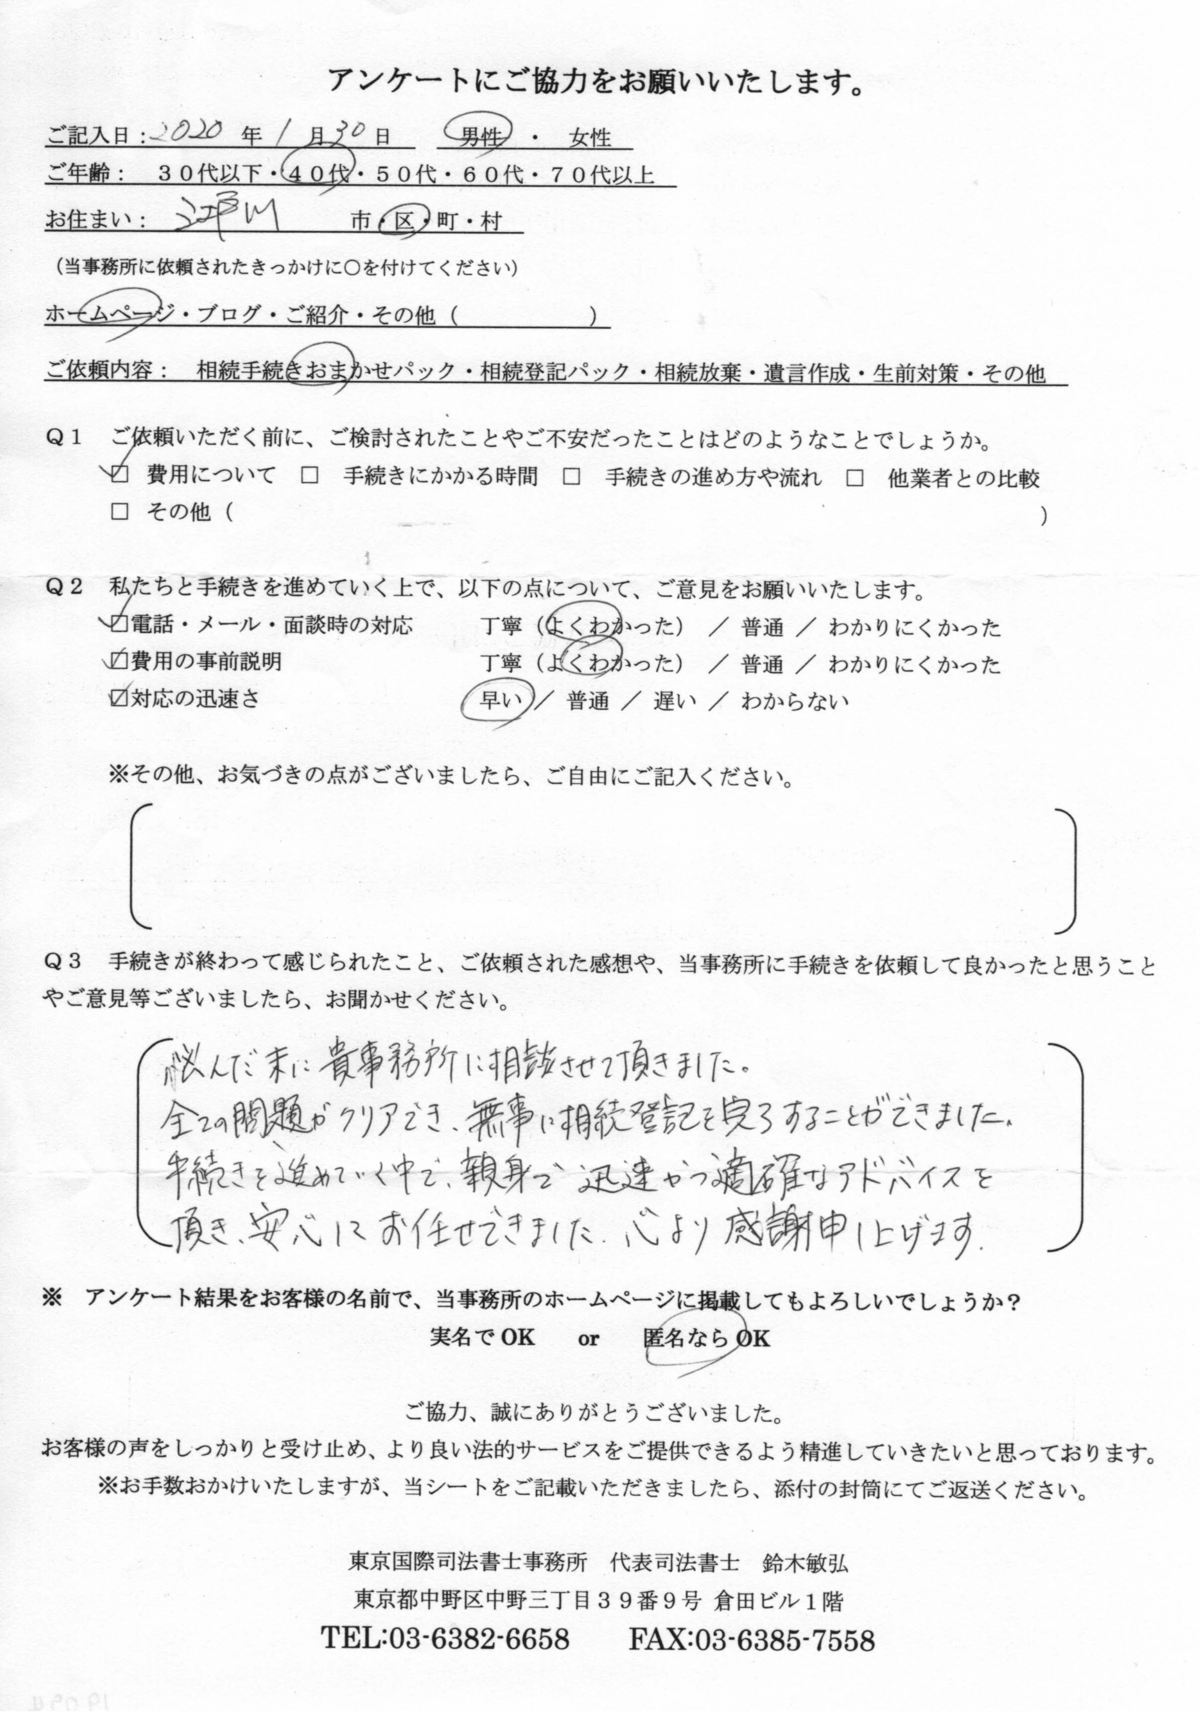 アンケートにご協力をお願いいたします。
ご記入日：2020 年 1 月 30 日　男性 ・ 女性
ご年齢：　３０代以下・４０代・５０代・６０代・７０代以上
お住まい：　江戸川　市・区・町・村
（当事務所に依頼されたきっかけに〇を付けてください）
ホームページ・ブログ・ご紹介・その他（　　　　　　）
ご依頼内容：　相続手続きおまかせパック・相続登記パック・相続放棄・遺言作成・生前対策・その他
Ｑ１　ご依頼いただく前に、ご検討されたことやご不安だったことはどのようなことでしょうか。
☑ 費用について　□　手続きにかかる時間　□　手続きの進め方や流れ　□　他業者との比較
□ その他（　　　　　　　　　　　　）
Ｑ２　私たちと手続きを進めていく上で、以下の点について、ご意見をお願いいたします。
☑電話・メール・面談時の対応　　丁寧（よくわかった）　／　普通　／　わかりにくかった
☑費用の事前説明　　丁寧（よくわかった）　／　普通　／　わかりにくかった
☑対応の迅速さ　　早い　／　普通　／　遅い　／　わからない
※その他、お気づきの点がございましたら、ご自由にご記入ください。
Ｑ３　手続きが終わって感じられたこと、ご依頼された感想や、当事務所に手続きを依頼して良かったと思うこと
やご意見等ございましたら、お聞かせください。
悩んだ末に貴事務所に相談させて頂きました。
全ての問題がクリアでき、無事に相続登記を完了することができました。
手続きを進めていく中で、親身で迅速かつ適確なアドバイスを
頂き、安心してお任せできました。心より感謝申し上げます。
※　アンケート結果をお客様の名前で、当事務所のホームページに掲載してもよろしいでしょうか？
実名で OK　　or　　匿名なら OK
ご協力、誠にありがとうございました。
お客様の声をしっかりと受け止め、より良い法的サービスをご提供できるよう精進していきたいと思っております。
※お手数おかけいたしますが、当シートをご記載いただきましたら、添付の封筒にてご返送ください。
東京国際司法書士事務所　代表司法書士　鈴木敏弘
東京都中野区中野三丁目３９番９号 倉田ビル１階
TEL:03-6382-6658　　FAX:03-6385-7558